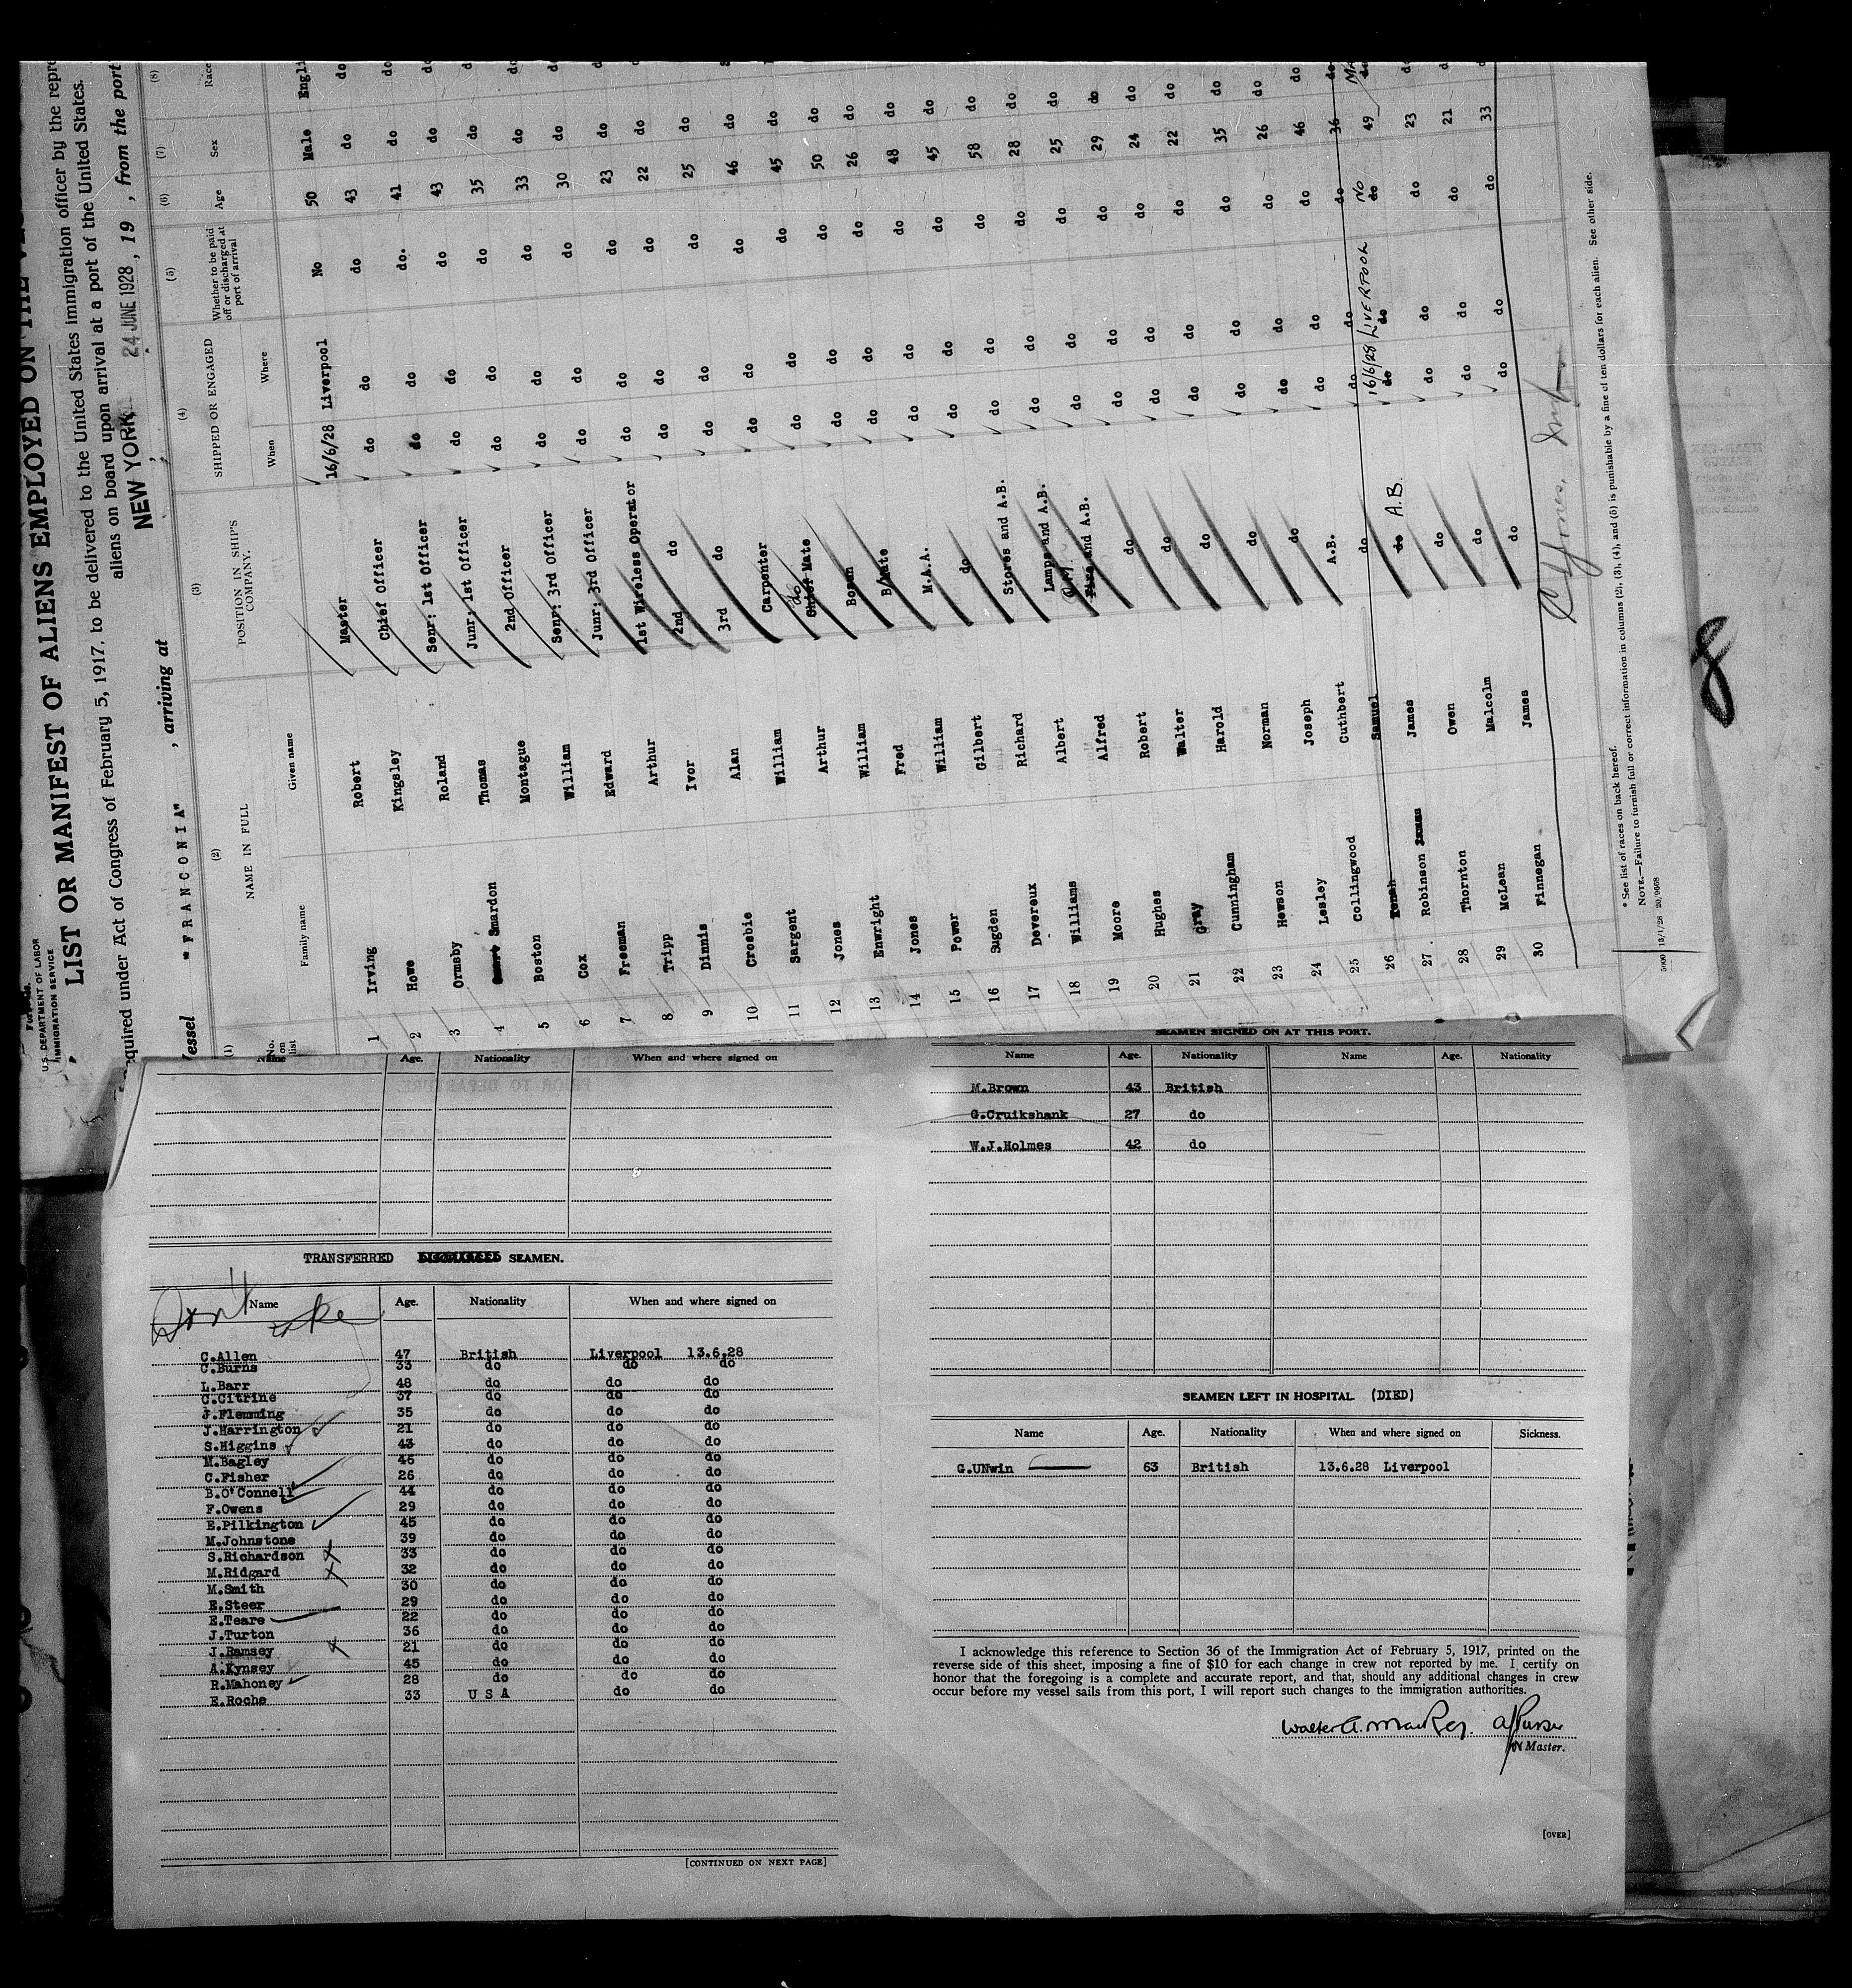 U.S. DEPARTMENT OF LABOR
IMMIGRATION SERVICE
LIST OR MANIFEST OF ALIENS EMPLOYED ON THE
equired under Act of Congress of February 5, 1917, to be delivered to the United States immigration officer by the repre
aliens on board upon arrival at a port of the United States.
Vessel "FRANCONIA" , arriving at NEW YORK 24 JUNE 1928 , 19 , from the port
(1) (2) (3) (4) (5) (6) (7) (8)
No. on list NAME IN FULL POSITION IN SHIP'S COMPANY. SHIPPED OR ENGAGED Whether to be paid off or discharged at port of arrival Age Sex Race
Family name Given name When Where
1 Irving Robert Master 16/6/28 Liverpool No 50 Male Engli
2 Howe Kingsley Chief Officer do do do 43 do do
3 Ormsby Roland Senr: 1st Officer do do do. 41 do do
4 Smardon Thomas Junr: 1st Officer do do do 43 do do
5 Boston Montague 2nd Officer do do do 35 do d
6 Cox William Senr: 3rd Officer do do do 33 do do
7 Freeman Edward Junr: 3rd Officer do do do 30 do do
8 Tripp Arthur 1st Wireless Operator do do do 23 do d
9 Dinnis Ivor 2nd do do do do 22 do do
10 Crosbie Alan 3rd do do do do 25 do do
11 Sargent William Carpenter do do do 46 do
12 Jones Arthur do Chief Mate do do do 45 do
13 Enwright William Bosun do do do 50 do
14 Jones Fred B/Mate do do do 26 do
15 Power William M.A.A. do do do 48 do
16 Sugden Gilbert do do do do 45 do
17 Devereux Richard Stores and A.B. do do do 58 do
18 Williams Albert Lamps and A.B. do do do 28 do
19 Moore Alfred Q.M. Fire and A.B. do do do 25 do
20 Hughes Robert do do do do 29 do
21 Gray Walter do do do do 24 do
22 Cunningham Harold do do do do 22 do
23 Hewson Norman do do do do 35 do
24 Lesley Joseph do do do do 26 do
25 Collingwood Cuthbert A.B. do do do 46 do
26 Kenah Samuel do do do do 36 do
27 Robinson James do A.B. 16/6/28 LIVERPOOL do do No do 49 do
28 Thornton Owen do do do do 23 do
29 McLean Malcolm do do do do 21 d
30 Finnegan James do do do do 33
* See list of races on back hereof.
NOTE.—Failure to furnish full or correct information in columns (2), (3), (4), and (5) is punishable by a fine of ten dollars for each alien. See other side.
5000 13/1/28 20/9668
8
Name Age. Nationality When and where signed on
TRANSFERRED DISCHARGED SEAMEN.
Name Age. Nationality When and where signed on
Don't
C.Allen 47 British Liverpool 13.6.28
C.Burns 33 do do do
L.Barr 48 do do do
C.Citrine 37 do do do
J.Flemming 35 do do do
J.Harrington 21 do do do
S.Higgins 43 do do do
M.Bagley 46 do do do
C.Fisher 26 do do do
B.O'Connell 44 do do do
F.Owens 29 do do do
E.Pilkington 45 do do do
M.Johnstone 39 do do do
S.Richardson 33 do do do
M.Ridgard 32 do do do
M.Smith 30 do do do
E.Steer 29 do do do
E.Teare 22 do do do
J.Turton 36 do do do
J.Ramsey 21 do do do
A.Kynsey 45 do do do
R.Mahoney 28 do do do
E.Roche 33 U S A do do
[CONTINUED ON NEXT PAGE]
SEAMEN SIGNED ON AT THIS PORT.
Name Age. Nationality Name Age. Nationality
M.Brown 43 British
G.Cruikshank 27 do
W.J.Holmes 42 do
SEAMEN LEFT IN HOSPITAL (DIED)
Name Age. Nationality When and where signed on Sickness.
G.UNwin 63 British 13.6.28 Liverpool
I acknowledge this reference to Section 36 of the Immigration Act of February 5, 1917, printed on the
reverse side of this sheet, imposing a fine of $10 for each change in crew not reported by me. I certify on
honor that the foregoing is a complete and accurate report, and that, should any additional changes in crew
occur before my vessel sails from this port, I will report such changes to the immigration authorities.
Walter A. Mackey. A/Purser
for Master.
[OVER]